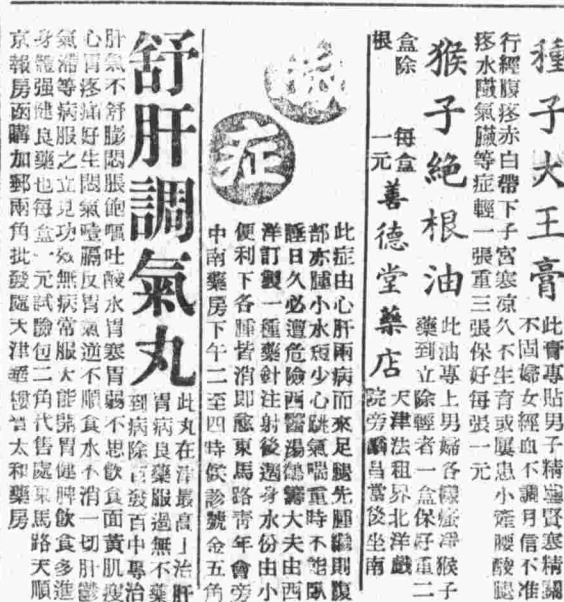 種子大王膏
此膏專貼男子精虛腎寒精關
不固婦女經血不調月信不准
行經腹疼赤白帶下子宮寒凉久不生育或屢患小產腰酸腿
疼水臌氣臌等症輕一張重三張保好每張一元
猴子絕根油
此油專上男婦各種瘊猴子
藥到立除輕者一盒保好重二
盒除根
每盒一元
善德堂藥店
天津法租界北洋戲
院旁昌當後坐南
腫症
此症由心肝兩病而來足腿先腫繼則腹
部亦腫小水短少心跳氣喘重時不能臥
睡日久必遭危險西醫湯鶴大夫由西
洋訂製一種藥針注射後週身水份由小
便利下各腫皆消即愈東馬路青年會旁
中南藥房下午二至四時候診號金五角
舒肝調氣丸
此丸在津最高！治肝
胃病良藥服過無不藥
到病除百發百中專治
肝氣不舒膨悶脹飽嘔吐酸水胃寒胃弱不思飲食面黃肌瘦
心胃疼痛好生悶氣噎膈反胃氣逆不順食水不消一切肝鬱
氣滯等病服之立見功效無病常服大能開胃健脾飲食多進
身體强健良藥也每盒一元試驗包二角代售處東馬路天順
京報房函購加郵兩角批發處天津太和藥房